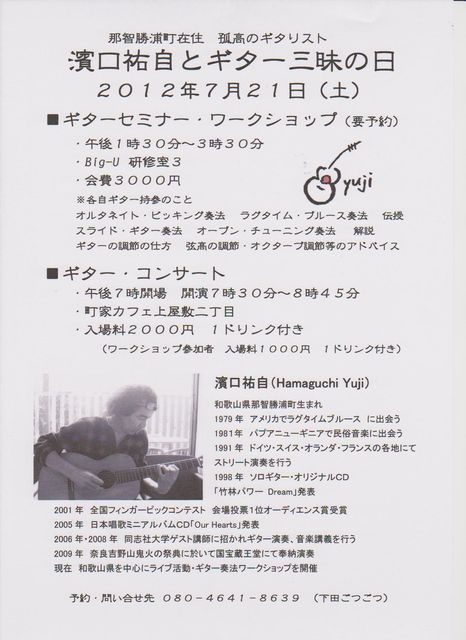 那智勝浦町在住　孤高のギタリスト
濱口祐自とギター三昧の日
２０１２年７月２１日（土）
■ギターセミナー・ワークショップ（要予約）
・午後１時３０分～３時３０分
・Big-U 研修室３
・会費３０００円
yuji
※各自ギター持参のこと
オルタネイト・ピッキング奏法　ラグタイム・ブルース奏法　伝授
スライド・ギター奏法　オープン・チューニング奏法　解説
ギターの調節の仕方　弦高の調節・オクターブ調節等のアドバイス
■ギター・コンサート
・午後７時開場　開演７時３０分～８時４５分
・町家カフェ上屋敷二丁目
・入場料２０００円　１ドリンク付き
（ワークショップ参加者　入場料１０００円　１ドリンク付き）
濱口祐自（Hamaguchi Yuji）
和歌山県那智勝浦町生まれ
1979 年　アメリカでラグタイムブルース　に出会う
1981年　パプアニューギニアで民俗音楽に出会う
1991 年　ドイツ・スイス・オランダ・フランスの各地にて
ストリート演奏を行う
1998 年　ソロギター・オリジナルCD
「竹林パワー Dream」発表
2001 年　全国フィンガーピックコンテスト　会場投票１位オーディエンス賞受賞
2005 年　日本唱歌ミニアルバムCD「Our Hearts」発表
2006 年・2008 年　同志社大学ゲスト講師に招かれギター演奏、音楽講義を行う
2009 年　奈良吉野山鬼火の祭典に於いて国宝蔵王堂にて奉納演奏
現在　和歌山県を中心にライブ活動・ギター奏法ワークショップを開催
予約・問い合せ先　０８０－４６４１－８６３９　（下田ごつごつ）